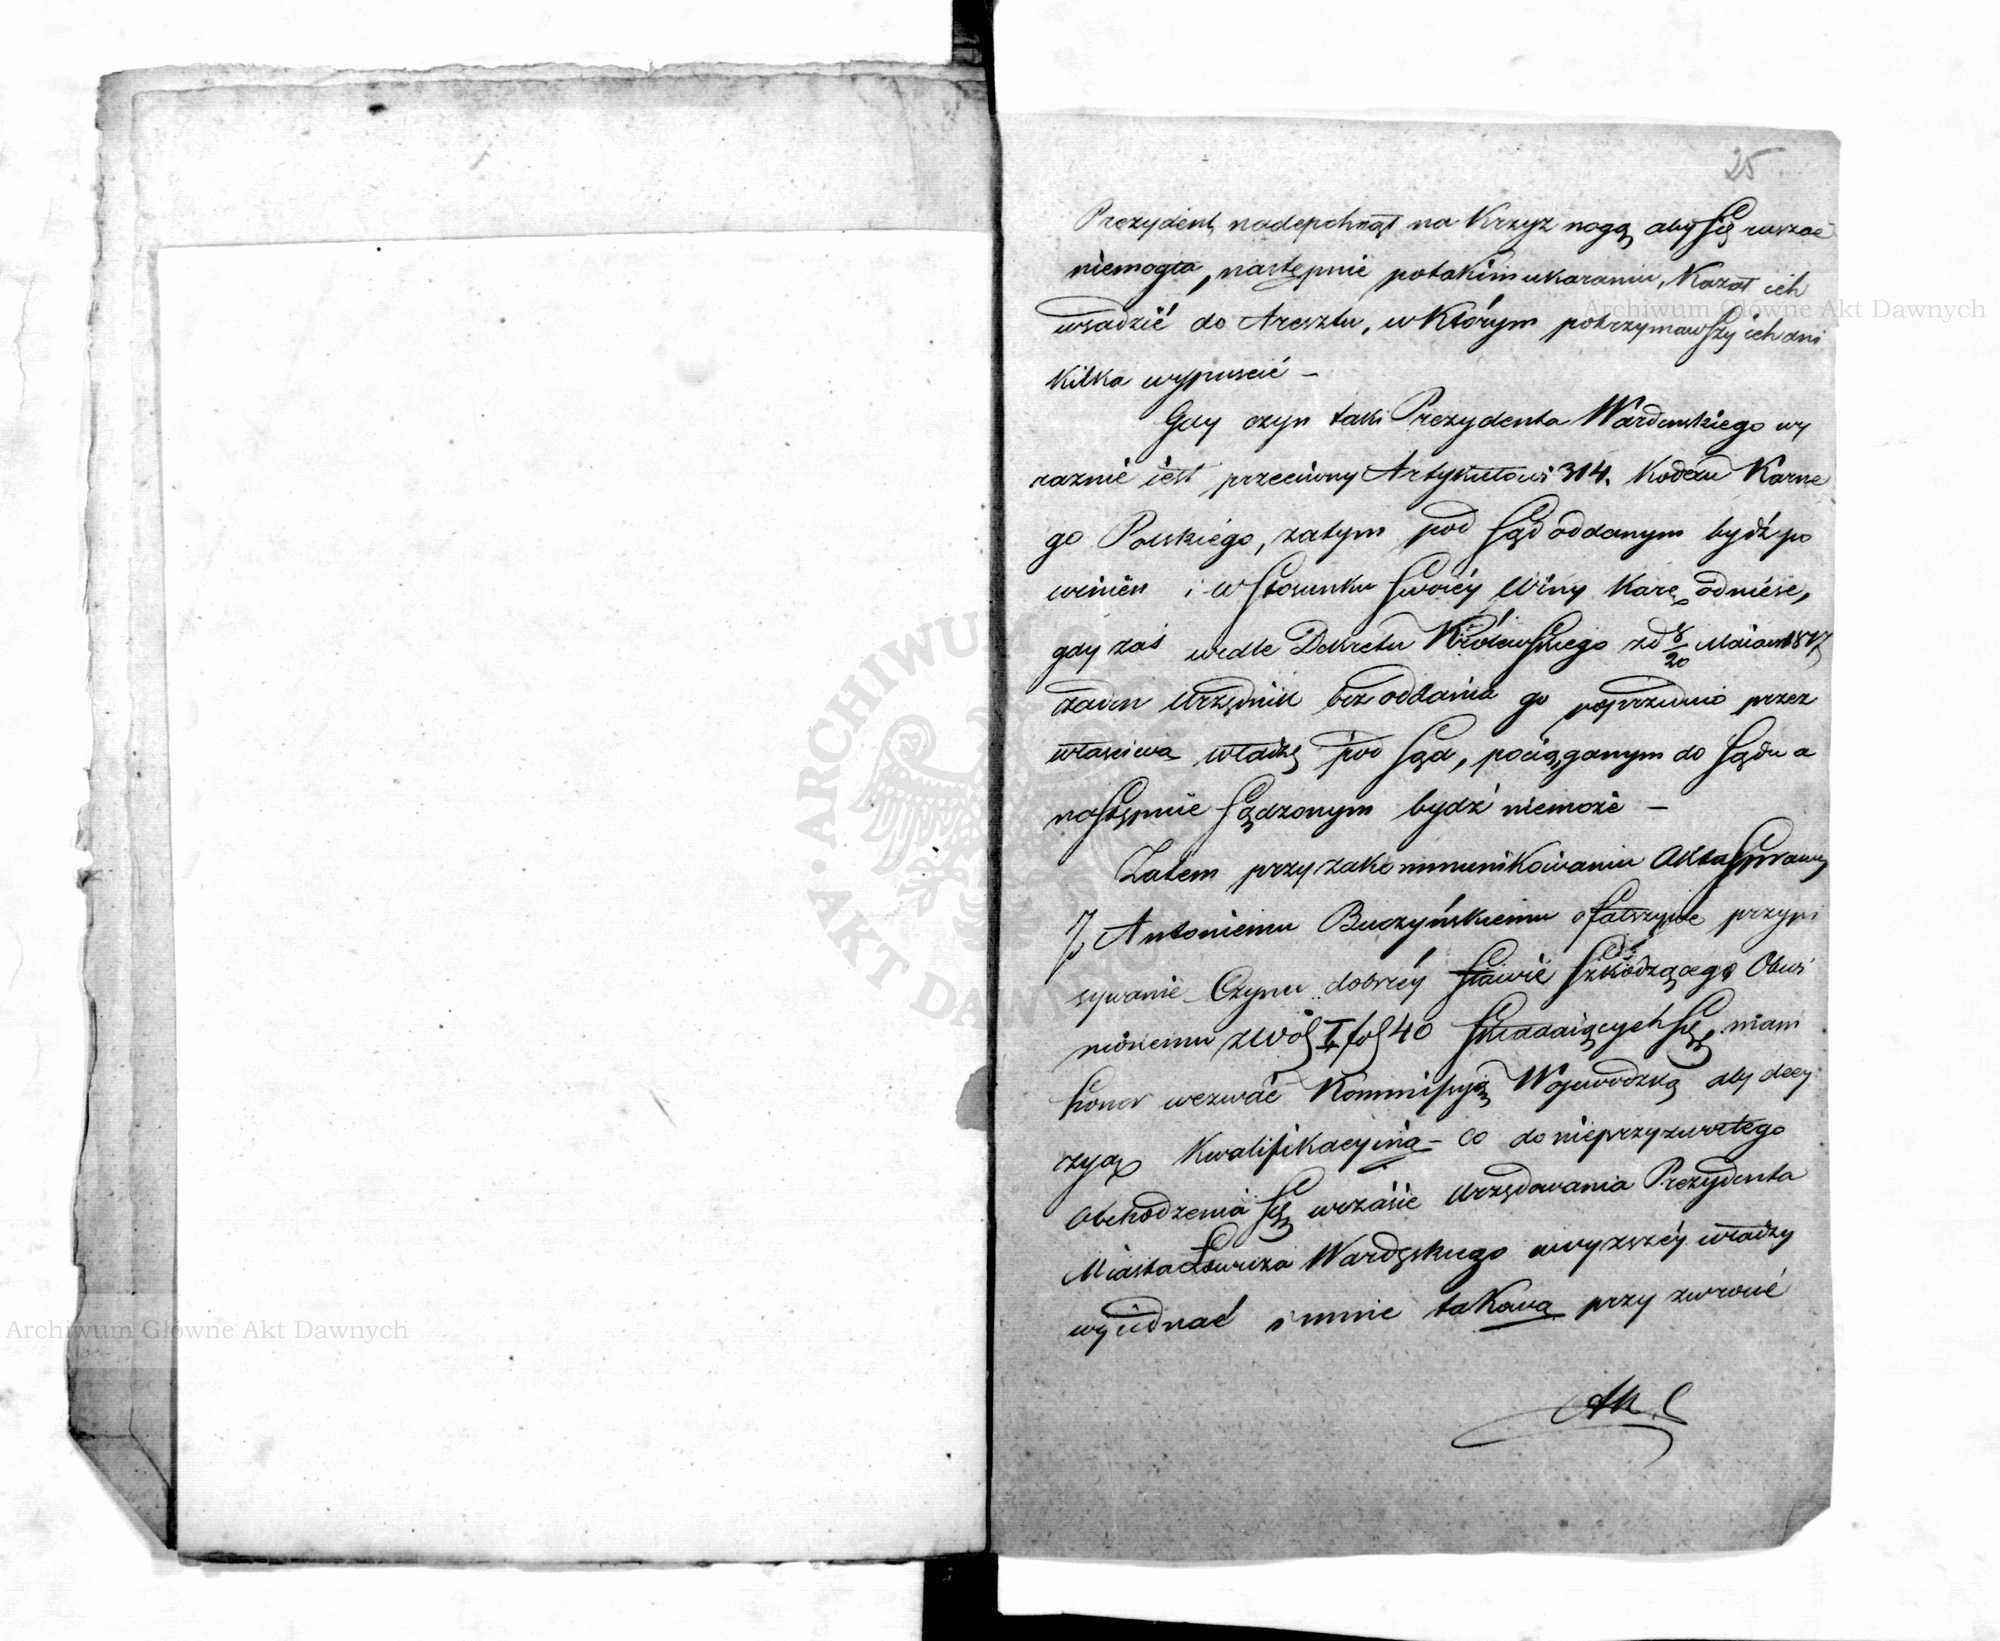 25
Prezydent nadepchnął na Krzyż nogą aby się ruszać
niemogła, następnie potakim ukaraniu, Kazał ich
wsadzić do Aresztu, w Którym potrzymawszy ich dni
Kilka wypuścić –
Gdy czyn taki Prezydenta Wardenskiego wy
raznie iest przeciwny Artykułowi 314. Kodexu Karne
go Polskiego, zatym pod Sąd oddanym bydź po
winien i w Stosunku Swoiéy Winy Karę odnieść,
gdy zaś wedle Dekretu Królewskiego zd 8/20 Maia 1817
żaden Urzędnik bez oddania go poprzednio przez
właściwą władzę pod Sąd, pociąganym do Sądu a
nastęmnie Sądzonym bydź niemoże –
Zatem przy zakommunikowaniu Akta Sprawy
Antoniemu Buczyńskiemu o fałszywe przypi
sywanie Czynu dobréy Sławie Szkodzącego Obwi
nionemu z Wol I fol 40 Składaiących Się, mam
honor wezwać Kommissyią Wojewodzką aby decy
zyą Kwalifikacyiną – co do nieprzyzwoitego
Obchodzenia Się wczasie Urzędowania Prezydenta
Miasta Łowicza Wardęskiego uwyższéy władzy
wyiednać i mnie takową przy zwrocie